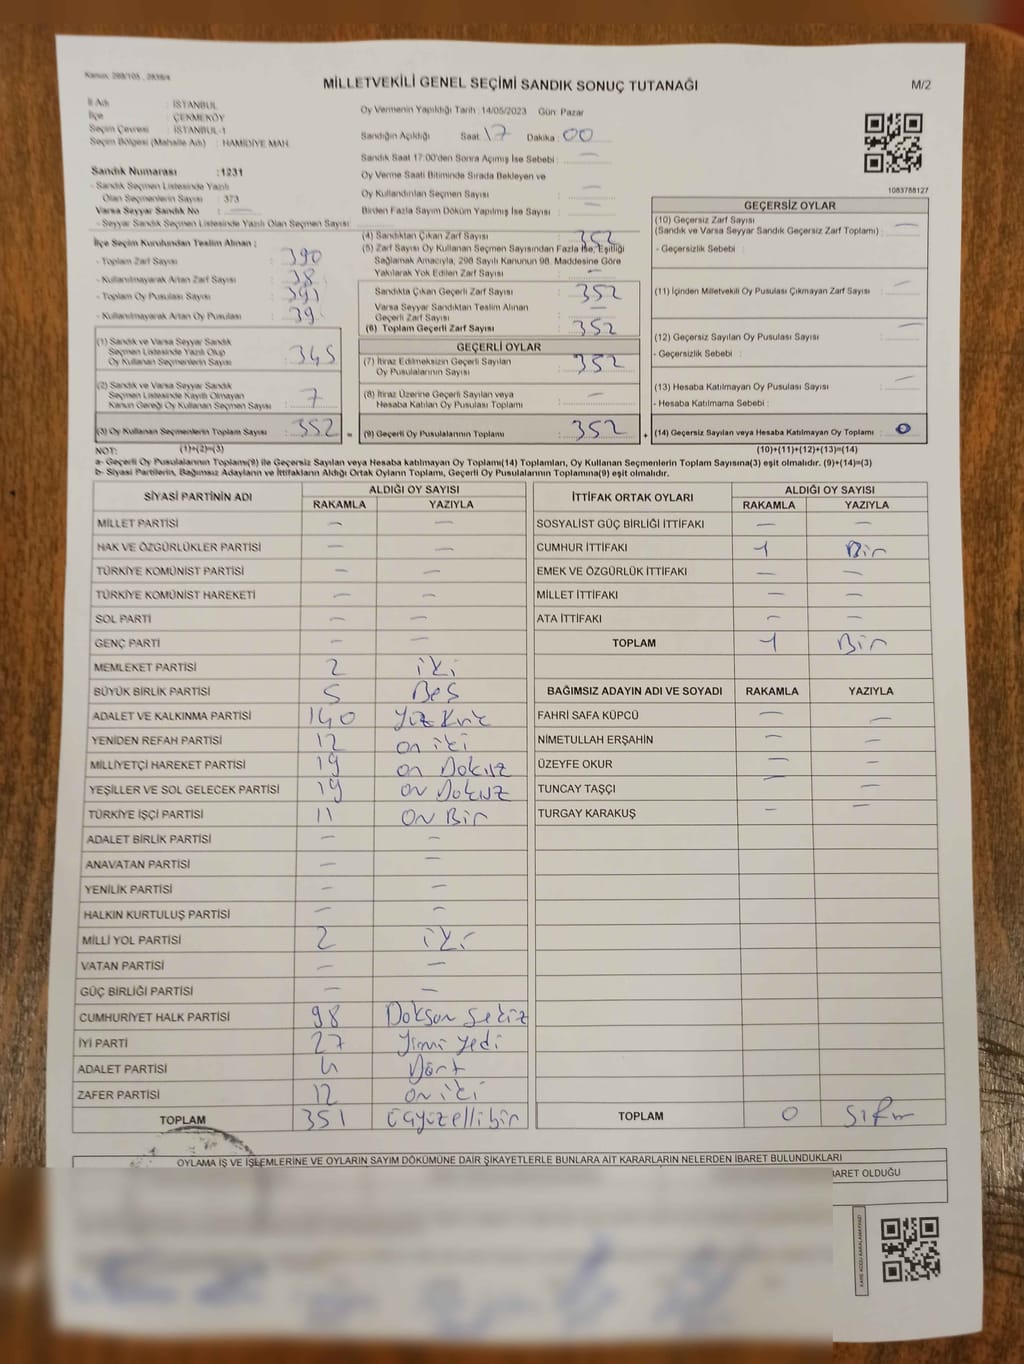 Kanun: 298/105 , 2839/4
MİLLETVEKİLİ GENEL SEÇİMİ SANDIK SONUÇ TUTANAĞI
M/2
İl Adı : İSTANBUL
İlçe : ÇEKMEKÖY
Seçim Çevresi : İSTANBUL-1
Seçim Bölgesi (Mahalle Adı) : HAMİDİYE MAH.
Oy Vermenin Yapıldığı Tarih : 14/05/2023 Gün: Pazar
Sandığın Açıldığı Saat : 17 Dakika : 00
Sandık Saat 17:00'den Sonra Açımış İse Sebebi : —
Oy Verme Saati Bitiminde Sırada Bekleyen ve
Oy Kullandırılan Seçmen Sayısı : —
Birden Fazla Sayım Döküm Yapılmış İse Sayısı : —
1083788127
Sandık Numarası :1231
- Sandık Seçmen Listesinde Yazılı
Olan Seçmenlerin Sayısı : 373
Varsa Seyyar Sandık No : —
- Seyyar Sandık Seçmen Listesinde Yazılı Olan Seçmen Sayısı:
İlçe Seçim Kurulundan Teslim Alınan :
- Toplam Zarf Sayısı : 390
- Kullanılmayarak Artan Zarf Sayısı : 38
- Toplam Oy Pusulası Sayısı : 391
- Kullanılmayarak Artan Oy Pusulası : 39
(1) Sandık ve Varsa Seyyar Sandık
Seçmen Listesinde Yazılı Olup
Oy Kullanan Seçmenlerin Sayısı : 345
(2) Sandık ve Varsa Seyyar Sandık
Seçmen Listesinde Kayıtlı Olmayan
Kanun Gereği Oy Kullanan Seçmen Sayısı : 7
(3) Oy Kullanan Seçmenlerin Toplam Sayısı : 352 =
(4) Sandıktan Çıkan Zarf Sayısı : 352
(5) Zarf Sayısı Oy Kullanan Seçmen Sayısından Fazla İse, Eşitliği
Sağlamak Amacıyla, 298 Sayılı Kanunun 98. Maddesine Göre
Yakılarak Yok Edilen Zarf Sayısı : —
Sandıkta Çıkan Geçerli Zarf Sayısı : 352
Varsa Seyyar Sandıktan Teslim Alınan
Geçerli Zarf Sayısı : —
(6) Toplam Geçerli Zarf Sayısı : 352
GEÇERLİ OYLAR
(7) İtiraz Edilmeksizin Geçerli Sayılan
Oy Pusulalarının Sayısı : 352
(8) İtiraz Üzerine Geçerli Sayılan veya
Hesaba Katılan Oy Pusulası Toplamı : —
(9) Geçerli Oy Pusulalarının Toplamı : 352 +
GEÇERSİZ OYLAR
(10) Geçersiz Zarf Sayısı
(Sandık ve Varsa Seyyar Sandık Geçersiz Zarf Toplamı) : —
- Geçersizlik Sebebi :
(11) İçinden Milletvekili Oy Pusulası Çıkmayan Zarf Sayısı : —
(12) Geçersiz Sayılan Oy Pusulası Sayısı : —
- Geçersizlik Sebebi :
(13) Hesaba Katılmayan Oy Pusulası Sayısı : —
- Hesaba Katılmama Sebebi :
(14) Geçersiz Sayılan veya Hesaba Katılmayan Oy Toplamı : 0
NOT: (1)+(2)=(3) (10)+(11)+(12)+(13)=(14)
a- Geçerli Oy Pusulalarının Toplamı(9) ile Geçersiz Sayılan veya Hesaba katılmayan Oy Toplamı(14) Toplamları, Oy Kullanan Seçmenlerin Toplam Sayısına(3) eşit olmalıdır. (9)+(14)=(3)
b- Siyasi Partilerin, Bağımsız Adayların ve İttifakların Aldığı Ortak Oyların Toplamı, Geçerli Oy Pusulalarının Toplamına(9) eşit olmalıdır.
SİYASİ PARTİNİN ADI ALDIĞI OY SAYISI
RAKAMLA YAZIYLA
MİLLET PARTİSİ — —
HAK VE ÖZGÜRLÜKLER PARTİSİ — —
TÜRKİYE KOMÜNİST PARTİSİ — —
TÜRKİYE KOMÜNİST HAREKETİ — —
SOL PARTİ — —
GENÇ PARTİ — —
MEMLEKET PARTİSİ 2 iki
BÜYÜK BİRLİK PARTİSİ 5 Beş
ADALET VE KALKINMA PARTİSİ 140 Yüz Kırk
YENİDEN REFAH PARTİSİ 12 on iki
MİLLİYETÇİ HAREKET PARTİSİ 19 on Dokuz
YEŞİLLER VE SOL GELECEK PARTİSİ 19 on Dokuz
TÜRKİYE İŞÇİ PARTİSİ 11 on Bir
ADALET BİRLİK PARTİSİ — —
ANAVATAN PARTİSİ — —
YENİLİK PARTİSİ — —
HALKIN KURTULUŞ PARTİSİ — —
MİLLİ YOL PARTİSİ 2 iki
VATAN PARTİSİ — —
GÜÇ BİRLİĞİ PARTİSİ — —
CUMHURİYET HALK PARTİSİ 98 Doksan Sekiz
İYİ PARTİ 27 Yirmi yedi
ADALET PARTİSİ 4 Dört
ZAFER PARTİSİ 12 on iki
TOPLAM 351 üçyüzellibir
İTTİFAK ORTAK OYLARI ALDIĞI OY SAYISI
RAKAMLA YAZIYLA
SOSYALİST GÜÇ BİRLİĞİ İTTİFAKI — —
CUMHUR İTTİFAKI 1 Bir
EMEK VE ÖZGÜRLÜK İTTİFAKI — —
MİLLET İTTİFAKI — —
ATA İTTİFAKI — —
TOPLAM 1 Bir
BAĞIMSIZ ADAYIN ADI VE SOYADI RAKAMLA YAZIYLA
FAHRİ SAFA KÜPCÜ — —
NİMETULLAH ERŞAHİN — —
ÜZEYFE OKUR — —
TUNCAY TAŞÇI — —
TURGAY KARAKUŞ — —
TOPLAM 0 Sıfır
OYLAMA İŞ VE İŞLEMLERİNE VE OYLARIN SAYIM DÖKÜMÜNE DAİR ŞİKAYETLERLE BUNLARA AİT KARARLARIN NELERDEN İBARET BULUNDUKLARI
BARET OLDUĞU
KARE KODU KARALAMAYINIZ!